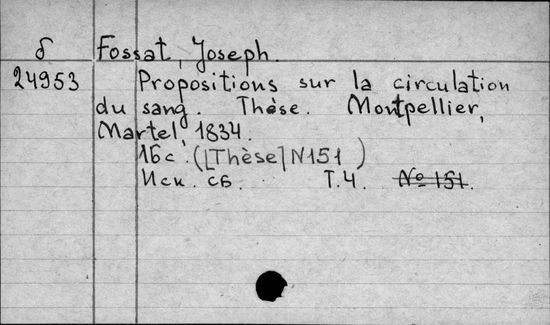 δ Fossat, Joseph.
24953 Propositions sur la circulation
du sang. Thèse. Montpellier,
Martel, 1834.
16 с. ([Thèse] N151)
Иск. сб. Т.4. № 151.